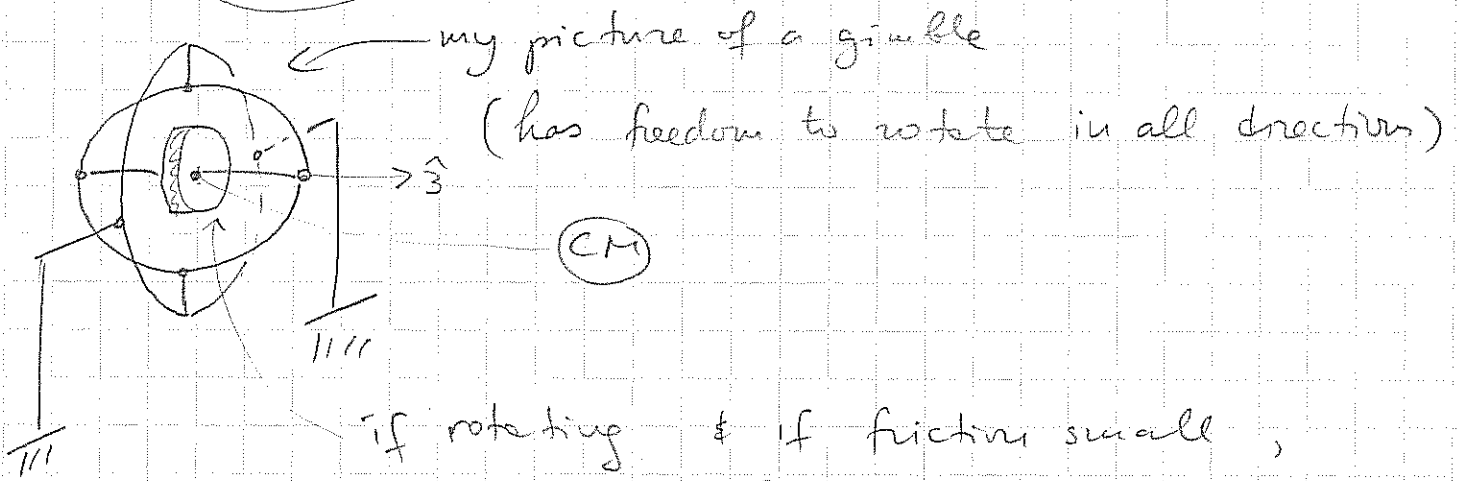 my picture of a gimble
(has freedom to rotate in all directions)
3̂
CM
if rotating & if friction small,